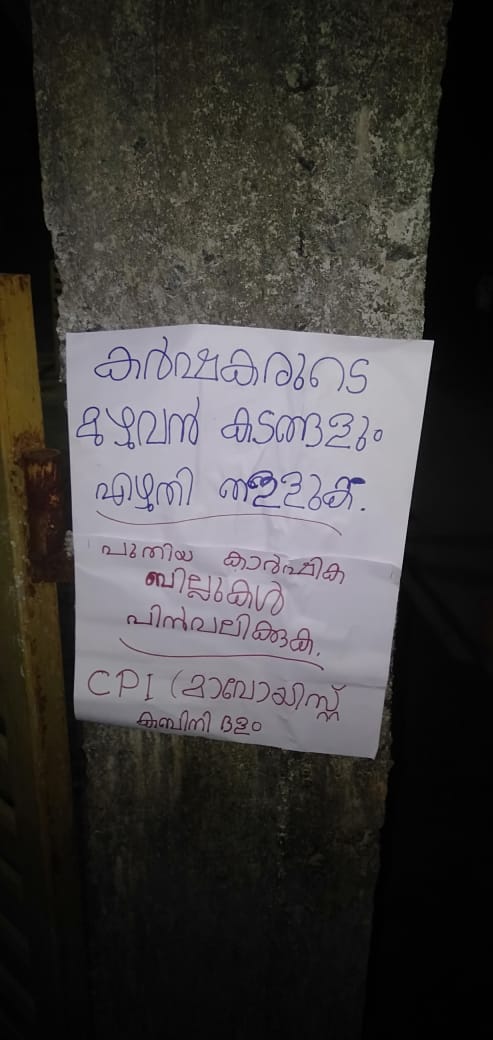 കർഷകരുടെ
മുഴുവൻ കടങ്ങളും
എഴുതി തള്ളുക.
പുതിയ കാർഷിക
ബില്ലുകൾ
പിൻവലിക്കുക.
CPI (മാവോയിസ്റ്റ്
കബനി ദളം